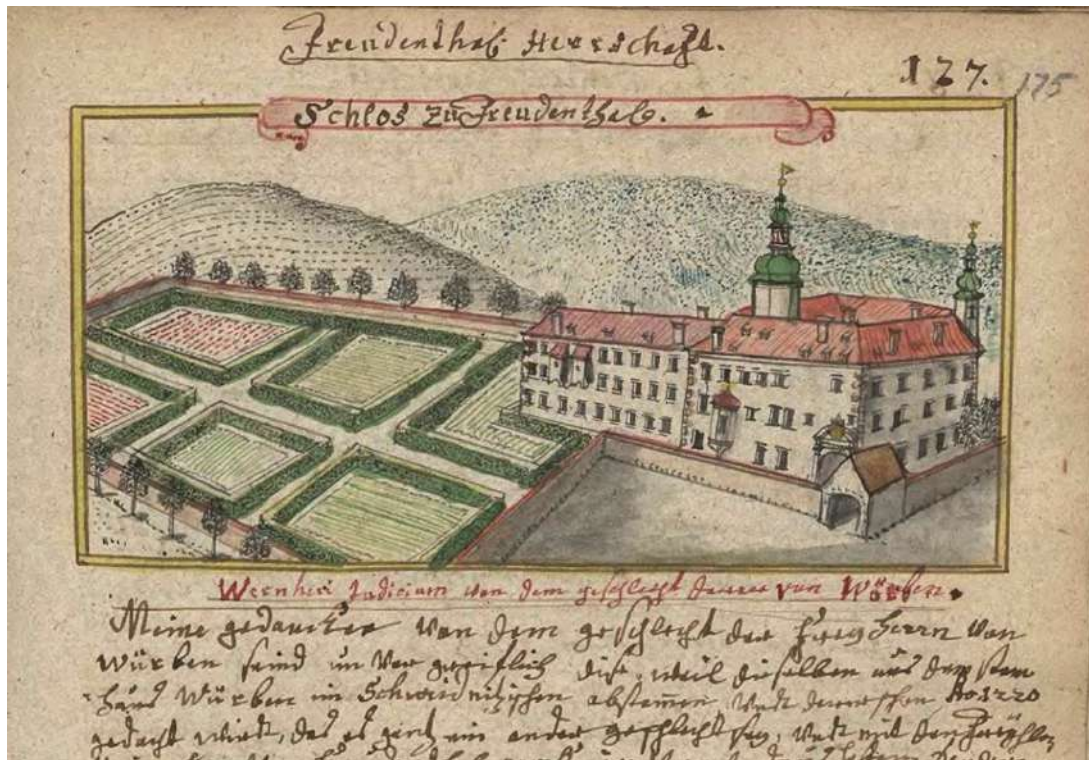 Freudenthal: Herrschaft.
127. 175
Schlos zu Freudenthal.
Wernheri Judicium von dem geschlecht derer von Würben.
Meine gedancken von dem geschlecht der Frey Herrn von
Würben seind un vor greiflich dise, weil dieselben aus dem stam
haus Würben im Schweidnitzschen abstamen, undt Ao 1220
gedacht wirdt, das es gantz ein ander geschlecht sey, undt mit den